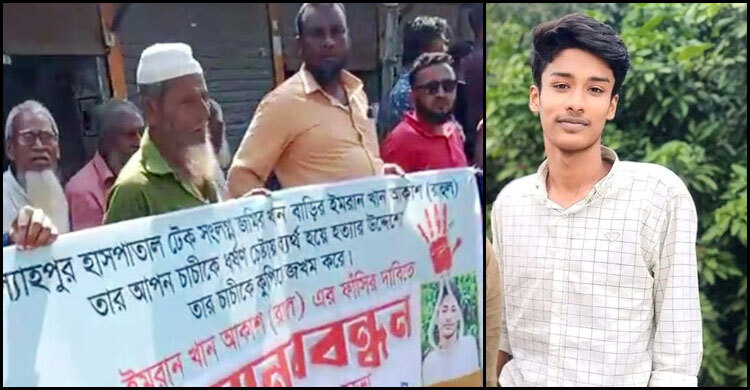 হাসপাতাল টেক সংলগ্ন জমির খান বাড়ির ইমরান খান আকাশ (রাহুল)
তার আপন চাচীকে ধর্ষণ চেষ্টায় ব্যর্থ হয়ে হত্যার উদ্দেশ্যে
তার চাচীকে কুপিয়ে জখম করে।
ইমরান খান আকাশ এর ফাঁসির দাবিতে